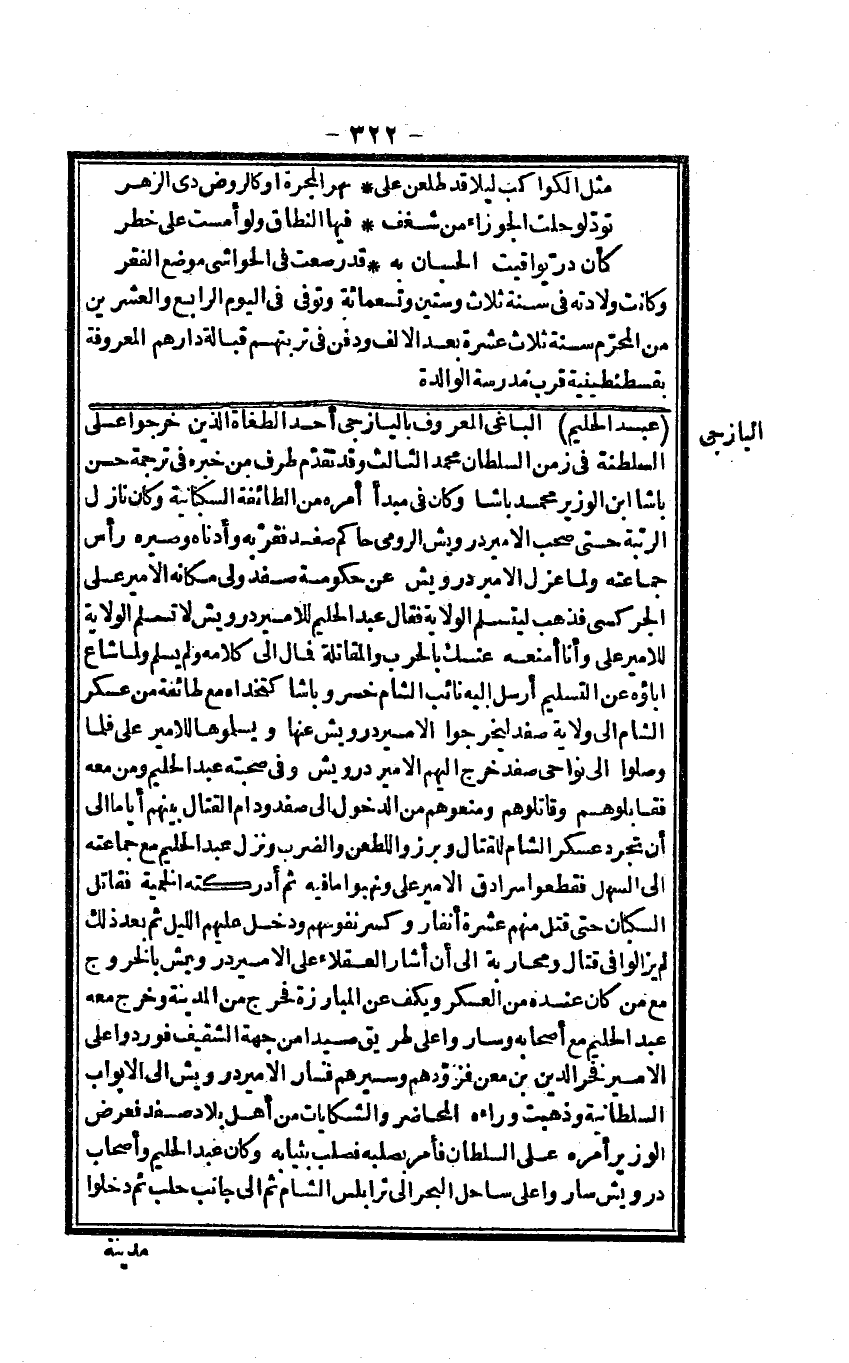 - ٣٢٢ -
مثل الكواكب ليلا قد طلعن على * نهر المجرة أو كالروض ذى الزهر
تودّ لو حلت الجوزاء من شغف * فيها النطاق ولو أمست على خطر
كأن درّ يواقيت الحسان به * قد رصعت فى الحواشى موضع الفقر
وكانت ولادته فى سنة ثلاث وستين وتسعمائة وتوفى فى اليوم الرابع والعشرين
من المحرّم سنة ثلاث عشرة بعد الالف ودفن فى تربتهم قبالة دارهم المعروفة
بقسطنطينية قرب مدرسة الوالدة
(عبد الحليم) الباغى المعروف باليازجى أحد الطغاة الذين خرجوا على
اليازجى
السلطنة فى زمن السلطان محمد الثالث وقد تقدّم طرف من خبره فى ترجمة حسن
باشا ابن الوزير محمد باشا وكان فى مبدأ أمره من الطائفة السكانية وكان نازل
الرتبة حتى صحب الامير درويش الرومى حاكم صفد فقرّبه وأدناه وصيره رأس
جماعته ولما عزل الامير درويش عن حكومة صفد ولى مكانه الامير على
الجركسى فذهب ليتسلم الولاية فقال عبد الحليم للامير درويش لا تسلم الولاية
للامير على وأنا أمنعه عنك بالحرب والمقاتلة فمال الى كلامه ولم يسلم ولما شاع
اباؤه عن التسليم أرسل اليه نائب الشام خسرو باشا كتخداه مع طائفة من عسكر
الشام الى ولاية صفد ليخرجوا الامير درويش عنها ويسلوها للامير على فلما
وصلوا الى نواحى صفد خرج اليهم الامير درويش وفى صحبته عبد الحليم ومن معه
فقابلوهم وقاتلوهم ومنعوهم من الدخول الى صفد ودام القتال بينهم أياما الى
أن تجرد عسكر الشام للقتال وبرزوا للطعن والضرب ونزل عبد الحليم مع جماعته
الى السهل فقطعوا سرادق الامير على ونهبوا ما فيه ثم أدركته الحمية فقاتل
السكان حتى قتل منهم عشرة أنفار وكسر نفوسهم ودخل عليهم الليل ثم بعد ذلك
لم يزالوا فى قتال ومحاربة الى أن أشار العقلاء على الامير درويش بالخروج
مع من كان عنده من العسكر ويكف عن المبارزة فخرج من المدينة وخرج معه
عبد الحليم مع أصحابه وساروا على طريق صيدا من جهة الشقيف فوردوا على
الامير فخر الدين بن معن فزوّدهم وسيرهم فسار الامير درويش الى الابواب
السلطانية وذهبت وراءه المحاضر والشكايات من أهل بلاد صفد فعرض
الوزير أمره على السلطان فأمر بصلبه فصلب بثيابه وكان عبد الحليم وأصحاب
درويش ساروا على ساحل البحر الى ترابلس الشام ثم الى جانب حلب ثم دخلوا
مدينة